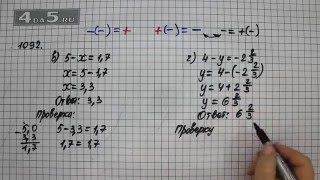 4да5.ru
-(-) = +
+(-) = -
- = +(-)
1092.
в) 5-x=1,7
x=5-1,7
x=3,3
Ответ: 3,3
Проверка:
5,0
3,3
1,7
5-3,3=1,7
1,7=1,7
г) 4-y=-2 2/3
y=4-(-2 2/3)
y=4+2 2/3
y=6 2/3
Ответ: 6 2/3
Проверка